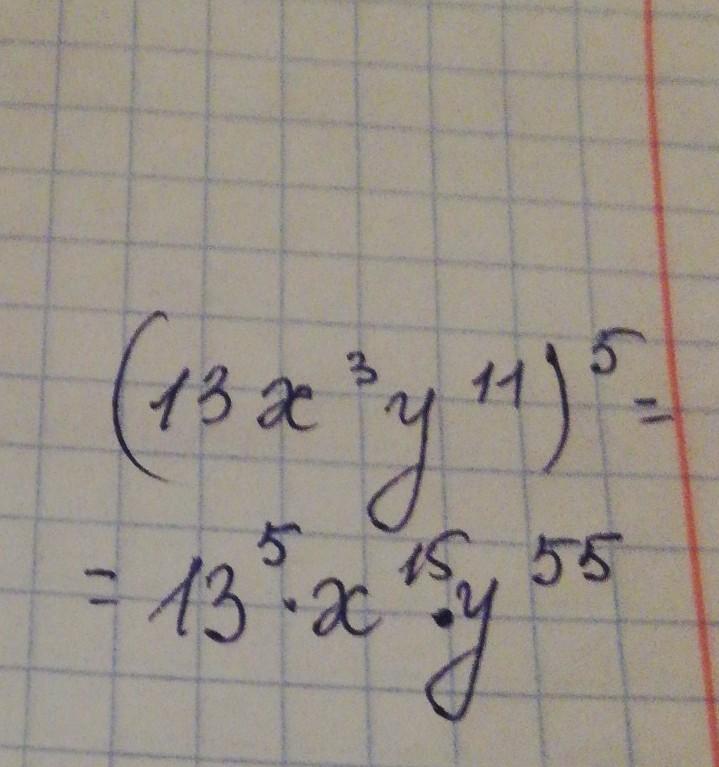 (13x³y¹¹)⁵=
=13⁵·x¹⁵·y⁵⁵